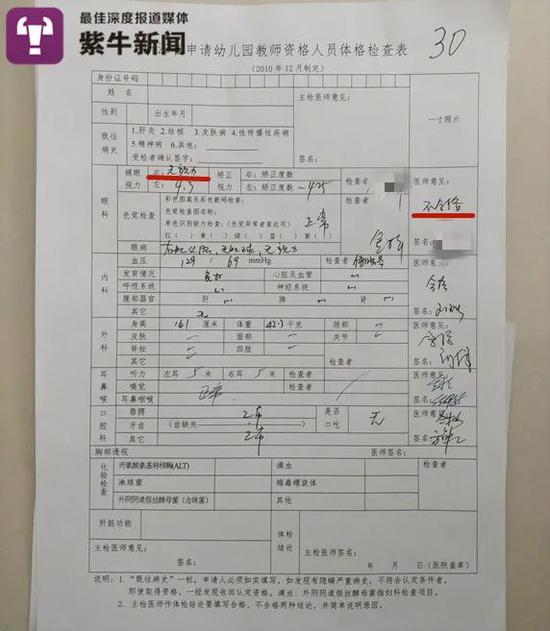 最佳深度报道媒体
紫牛新闻
申请幼儿园教师资格人员体格检查表
30
(2010年12月制定)
身份证号码
姓名
主检医师意见:
一寸照片
性别
出生年月
既往病史
1.肝炎 2.结核 3.皮肤病 4.性传播性疾病
5.精神病 6.其他:
受检者确认签字:
签名:
眼科
裸眼视力
右: 无视力
左: 4.3
矫正视力
右: 矫正度数
左: 矫正度数 -425
检查者
医师意见:
不合格
签名:
色觉检查
彩色图案及彩色数码检查:
色觉检查图名称:
单色识别能力检查: (色觉异常者查此项)
红( ) 黄( ) 绿( ) 蓝( ) 紫( )
正常
检查者
眼病
右眼义眼, 无眼球, 无视力
内科
血压
129 / 69 mmHg
检查者
医师意见:
合格
签名:
发育情况
良好
心脏及血管
呼吸系统
神经系统
腹部器官
肝
脾
肾
其它
无
外科
身高
141 厘米
体重
千克
颈部
医师意见:
签名:
皮肤
面部
关节
脊柱
四肢
其它
检查者
耳鼻喉
听力
左耳 5 米
右耳 5 米
检查者
医师意见:
签名:
嗅觉
耳鼻咽喉
正常
检查者
口腔科
唇腭
正常
是否口吃
无
医师意见:
签名:
牙齿
(齿缺失
正常
胸部透视
医师签名:
化验检查
丙氨酸氨基转移酶(ALT)
滴虫
检查者
淋球菌
梅毒螺旋体
外阴阴道假丝酵母菌(念珠菌)
其他
肝脏功能
主检医师意见:
签名:
体检结论
主检医师签名:
年 月 日(医院盖章)
说明: 1. “既往病史”一栏, 申请人必须如实填写, 如发现有隐瞒严重病史, 不符合认定条件者,
即使取得资格, 一经发现收回认定资格。滴虫、外阴阴道假丝酵母菌指妇科检查项目。
2. 主检医师作体检结论要填写合格、不合格两种结论, 并简单说明原因。